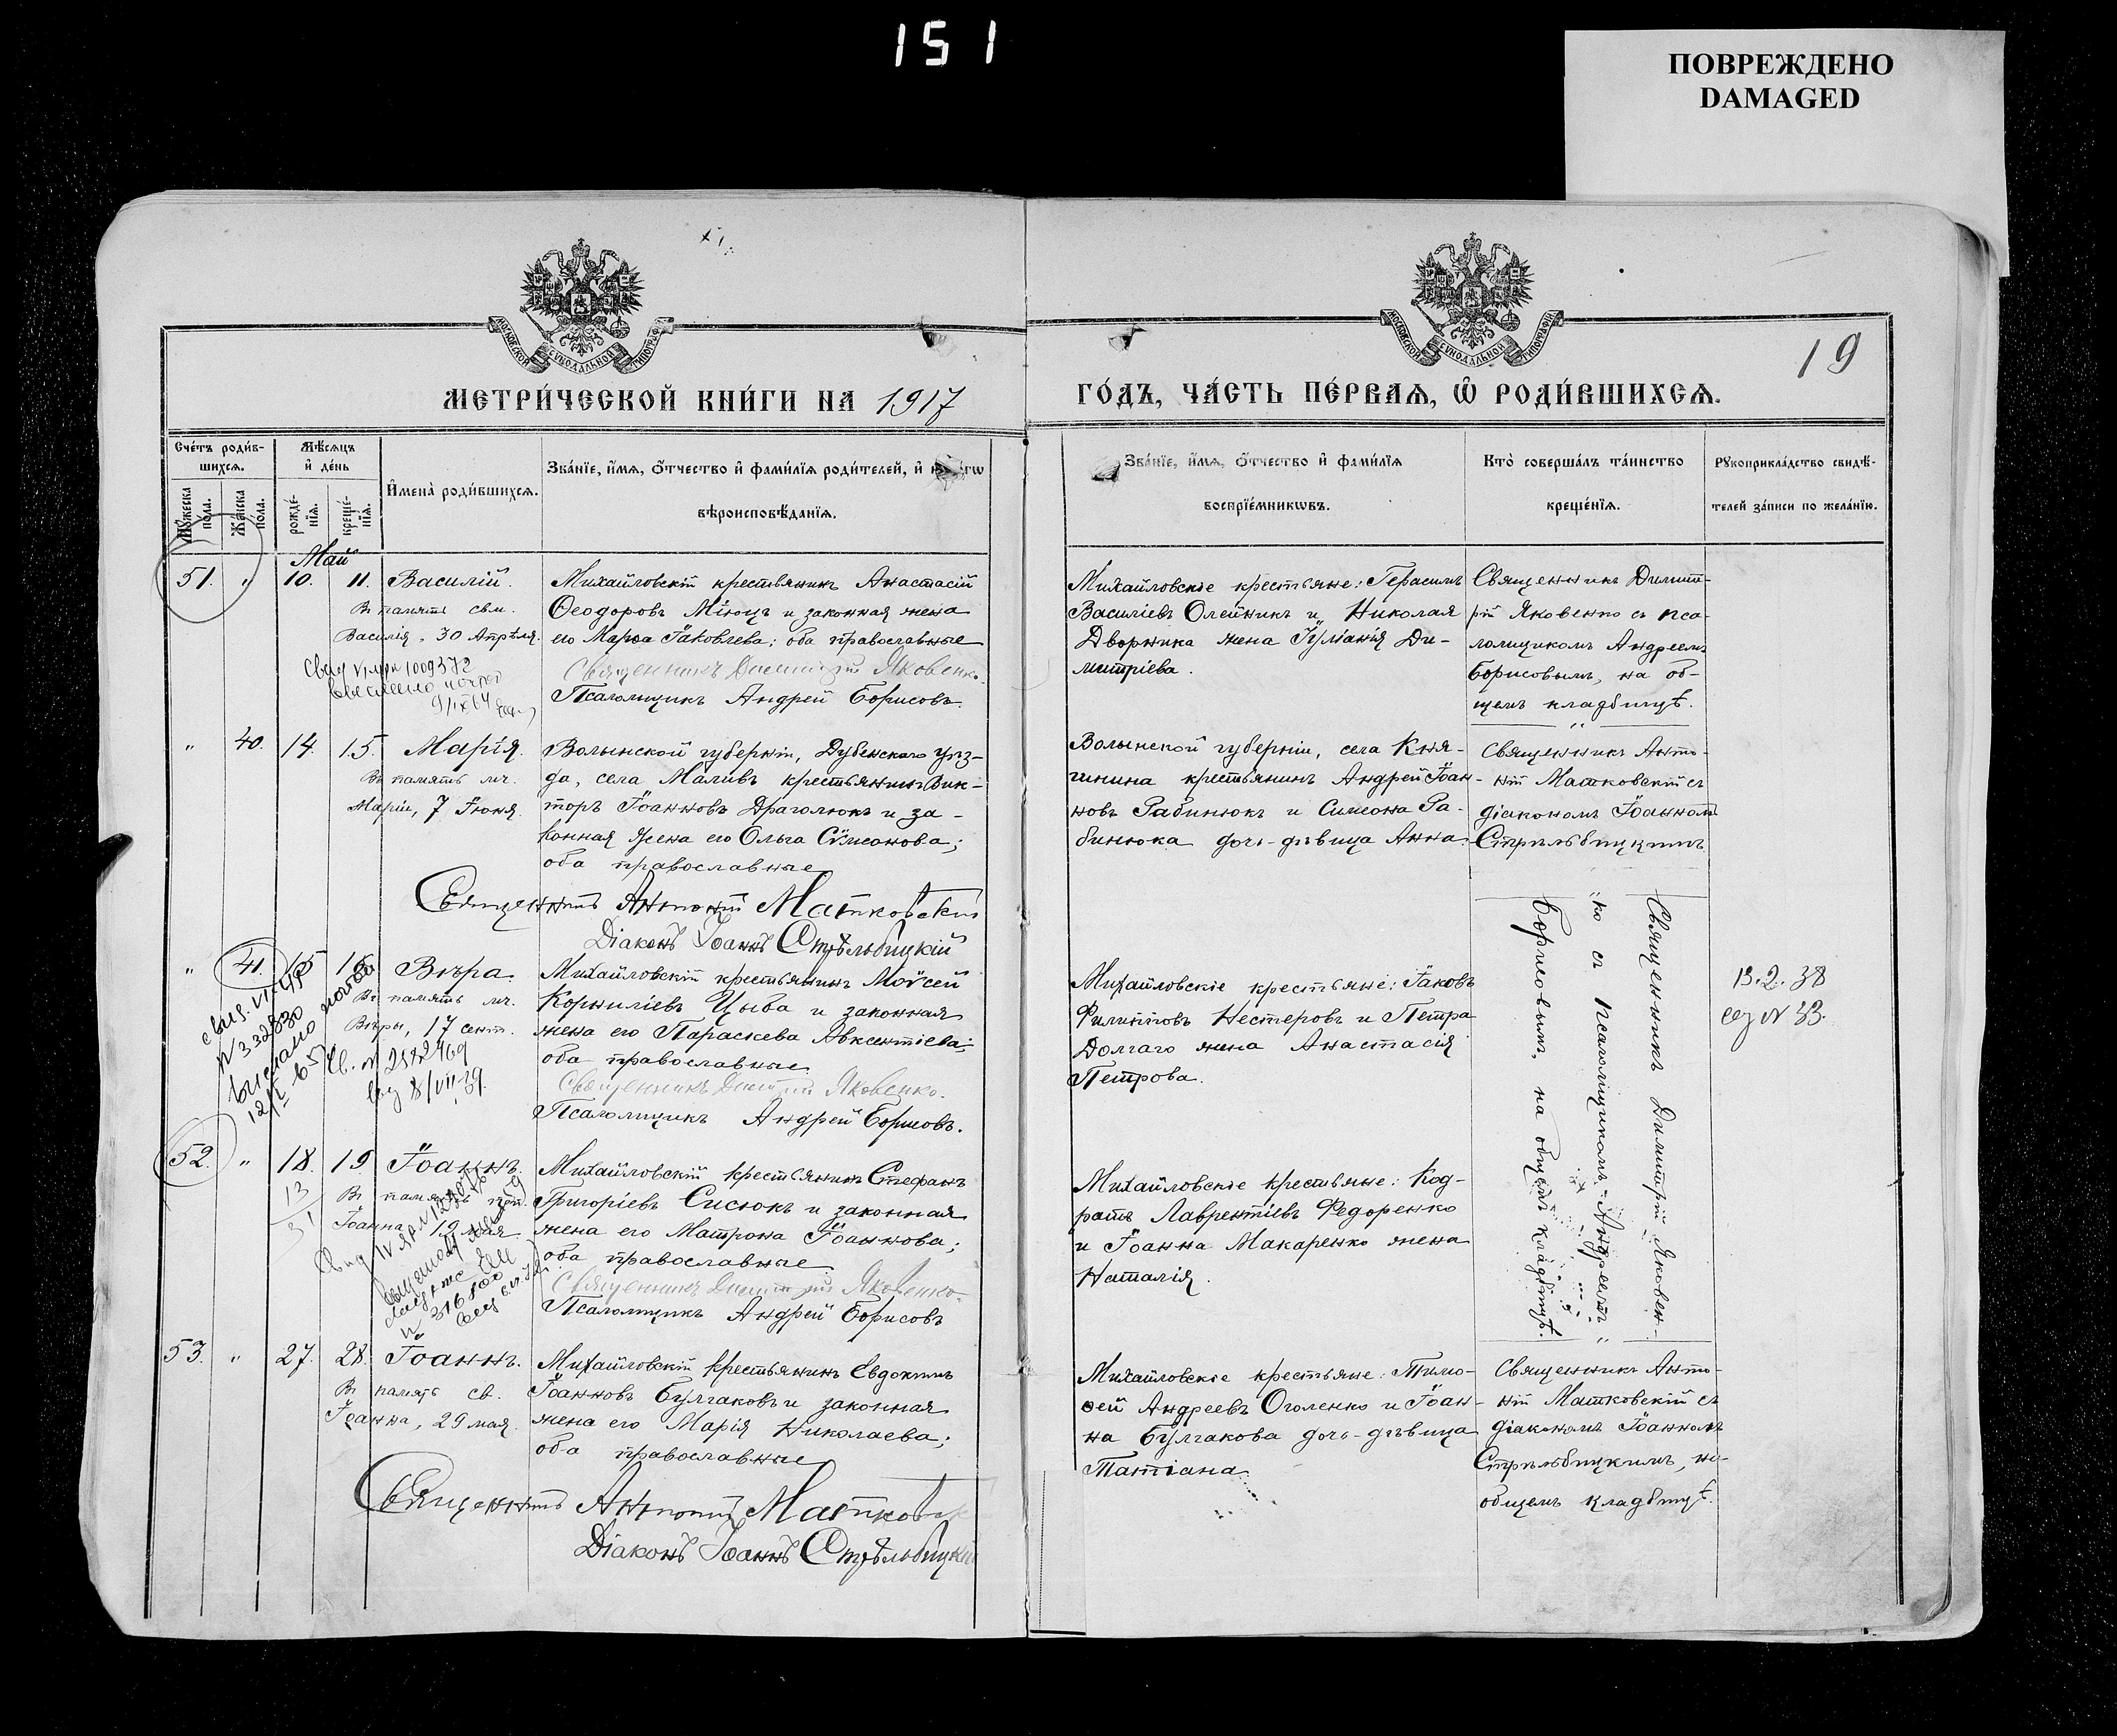 151
ПОВРЕЖДЕНО
DAMAGED
19
МОСКОВСКОЙ СѴНОДАЛЬНОЙ ТИПОГРАФІИ
МОСКОВСКОЙ СѴНОДАЛЬНОЙ ТИПОГРАФІИ
МЕТРИ́ЧЕСКОЙ КНИ́ГИ НА 1917
ГО́ДЪ, ЧА́СТЬ ПЕ́РВАѦ, Ѡ РОДИ́ВШИХСѦ.
Сче́тъ роди́в-
шихсѧ.
Мѣ́сѧцъ
и де́нь
Мꙋ́жеска по́ла.
Же́нска по́ла.
рожде́-
нїѧ.
креще́-
нїѧ.
И҆мена̀ роди́вшихсѧ.
Зва́нїе, и҆́мѧ, ѻ҆́тчество и҆ фами́лїѧ роди́телей, и҆
вѣроисповѣ́данїѧ.
Зва́нїе, и҆́мѧ, ѻ҆́тчество и҆ фами́лїѧ
воспрїе́мникѡвъ.
Кто̀ соверша́лъ та́инство
креще́нїѧ.
Рꙋкоприкла́дство свидѣ́-
телей за́писи по жела́нїю.
Май
51. " 10. 11. Василій.
Въ память свм.
Василія, 30 Апрѣля.
Михайловскій крестьянинъ Анастасій
Ѳеодоровъ Міюцъ и законная жена
его Марѳа Іаковлева; оба православные
Священникъ Димитрій Яковенко.
Псаломщикъ Андрей Борисовъ.
Михайловскіе крестьяне: Герасимъ
Василіевъ Олейникъ и Николая
Дворника жена Іуліанія Ди-
митріева.
Священникъ Димит-
рій Яковенко съ пса-
ломщикомъ Андреемъ
Борисовымъ, на об-
щемъ кладбищѣ.
" 40. 14. 15. Марія.
Въ память мч.
Маріи, 7 Іюня.
Волынской губерніи, Дубенскаго уѣз-
да, села Маливъ крестьянинъ Вик-
торъ Іоанновъ Драголюкъ и за-
конная жена его Ольга Сѵмеонова;
оба православные
Священникъ Антоній Матковскій
Діаконъ Іоаннъ Стрѣльбицкій
Волынской губерніи, села Кня-
гинина крестьянинъ Андрей Іоан-
новъ Рабинюкъ и Симеона Ра-
бинюка дочь-дѣвица Анна.
Священникъ Анто-
ній Матковскій съ
діакономъ Іоанномъ
Стрѣльбицкимъ
" 41. 15 16. Вѣра.
Въ память мч.
Вѣры, 17 сент.
Михайловскій крестьянинъ Моѵсей
Корниліевъ Цыба и законная
жена его Параскева Авксентіева;
оба православные
Священникъ Димитрій Яковенко.
Псаломщикъ Андрей Борисовъ.
Михайловскіе крестьяне: Іаковъ
Филипповъ Нестеровъ и Петра
Долгаго жена Анастасія
Петрова.
Священникъ Димитрій Яковен-
"ко съ псаломщикомъ Андреемъ "
Борисовымъ, на общемъ кладбищѣ.
13.2.38
N 33.
52. " 18. 19. Іоаннъ.
Въ память
Іоанна, 19 мая
Михайловскій крестьянинъ Стефанъ
Григоріевъ Сисюкъ и законная
жена его Матрона Іоаннова;
оба православные
Священникъ Димитрій Яковенко.
Псаломщикъ Андрей Борисовъ
Михайловскіе крестьяне: Код-
ратъ Лаврентіевъ Федоренко
и Іоанна Макаренко жена
Наталія.
53. " 27. 28. Іоаннъ.
Въ память св.
Іоанна, 29 мая.
Михайловскій крестьянинъ Евдокимъ
Іоанновъ Булгаковъ и законная
жена его Марія Николаева;
оба православные
Священникъ Антоній Матковск
Діаконъ Іоаннъ Стрѣльбицкій
Михайловскіе крестьяне: Тимо-
ѳей Андреевъ Оголенко и Іоан-
на Булгакова дочь-дѣвица
Татіана.
Священникъ Анто-
ній Матковскій съ
діакономъ Іоанномъ
Стрѣльбицкимъ, на
общемъ кладбищѣ.